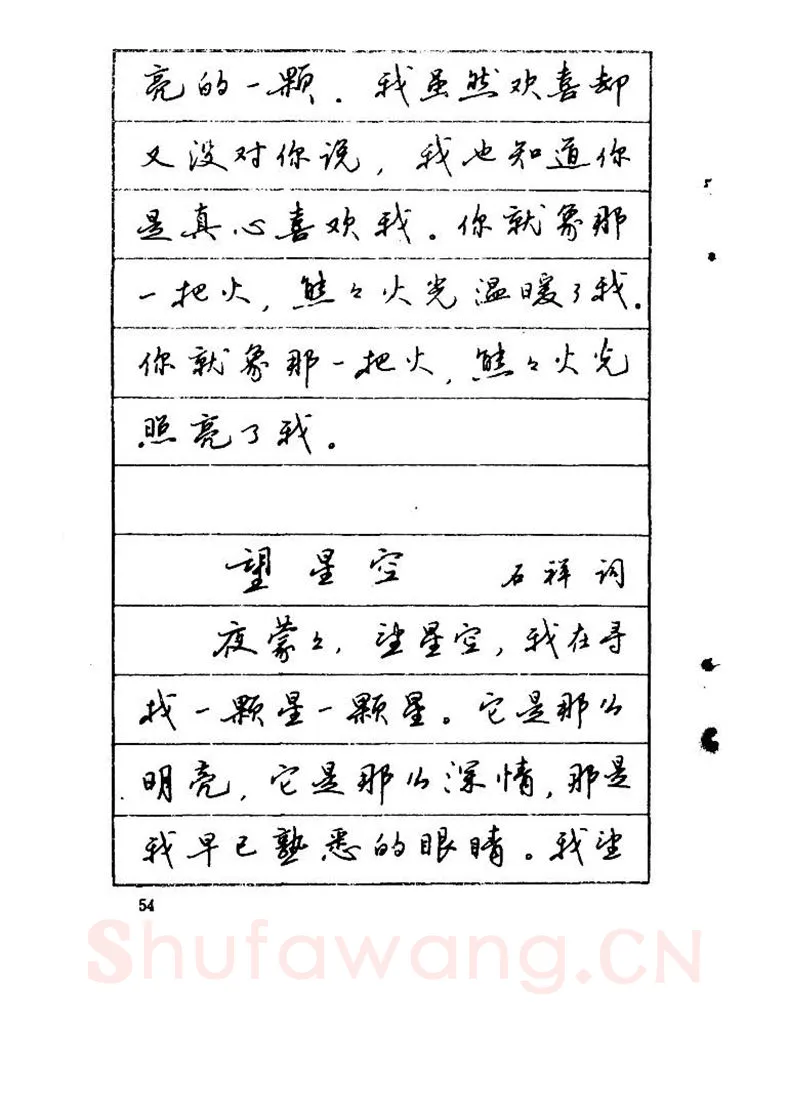 亮的一颗．我虽然欢喜却
又没对你说，我也知道你
是真心喜欢我。你就象那
一把火，熊々火光温暖了我．
你就象那一把火，熊々火光
照亮了我。
望星空 石祥词
夜蒙々，望星空，我在寻
找一颗星一颗星。它是那么
明亮，它是那么深情，那是
我早已熟悉的眼睛。我望
54
Shufawang.CN